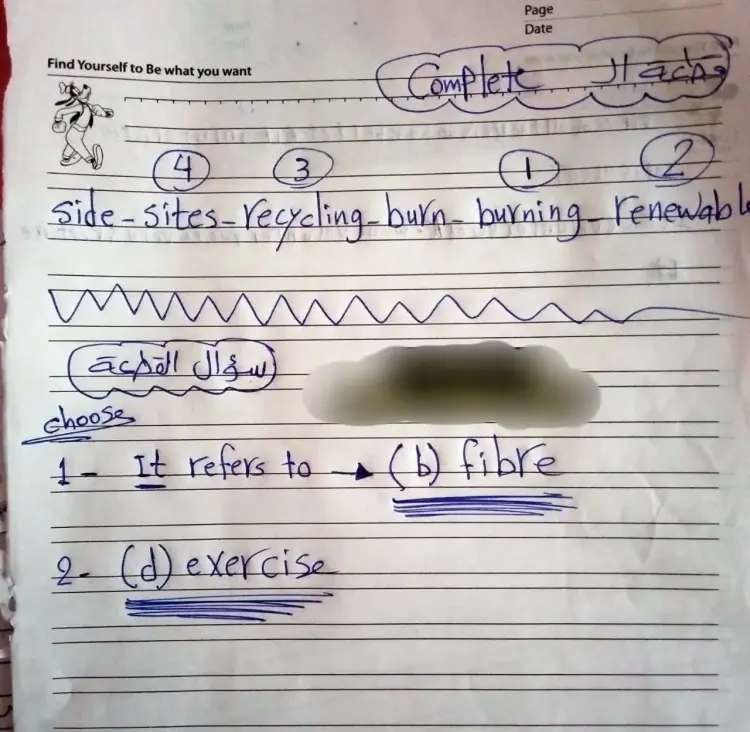 Page
Date
Find Yourself to Be what you want
قطعة ال Complete
4 3 1 2
side - sites - recycling - burn - burning - renewable
سؤال القطعة
choose
1 - It refers to → (b) fibre
2 - (d) exercise